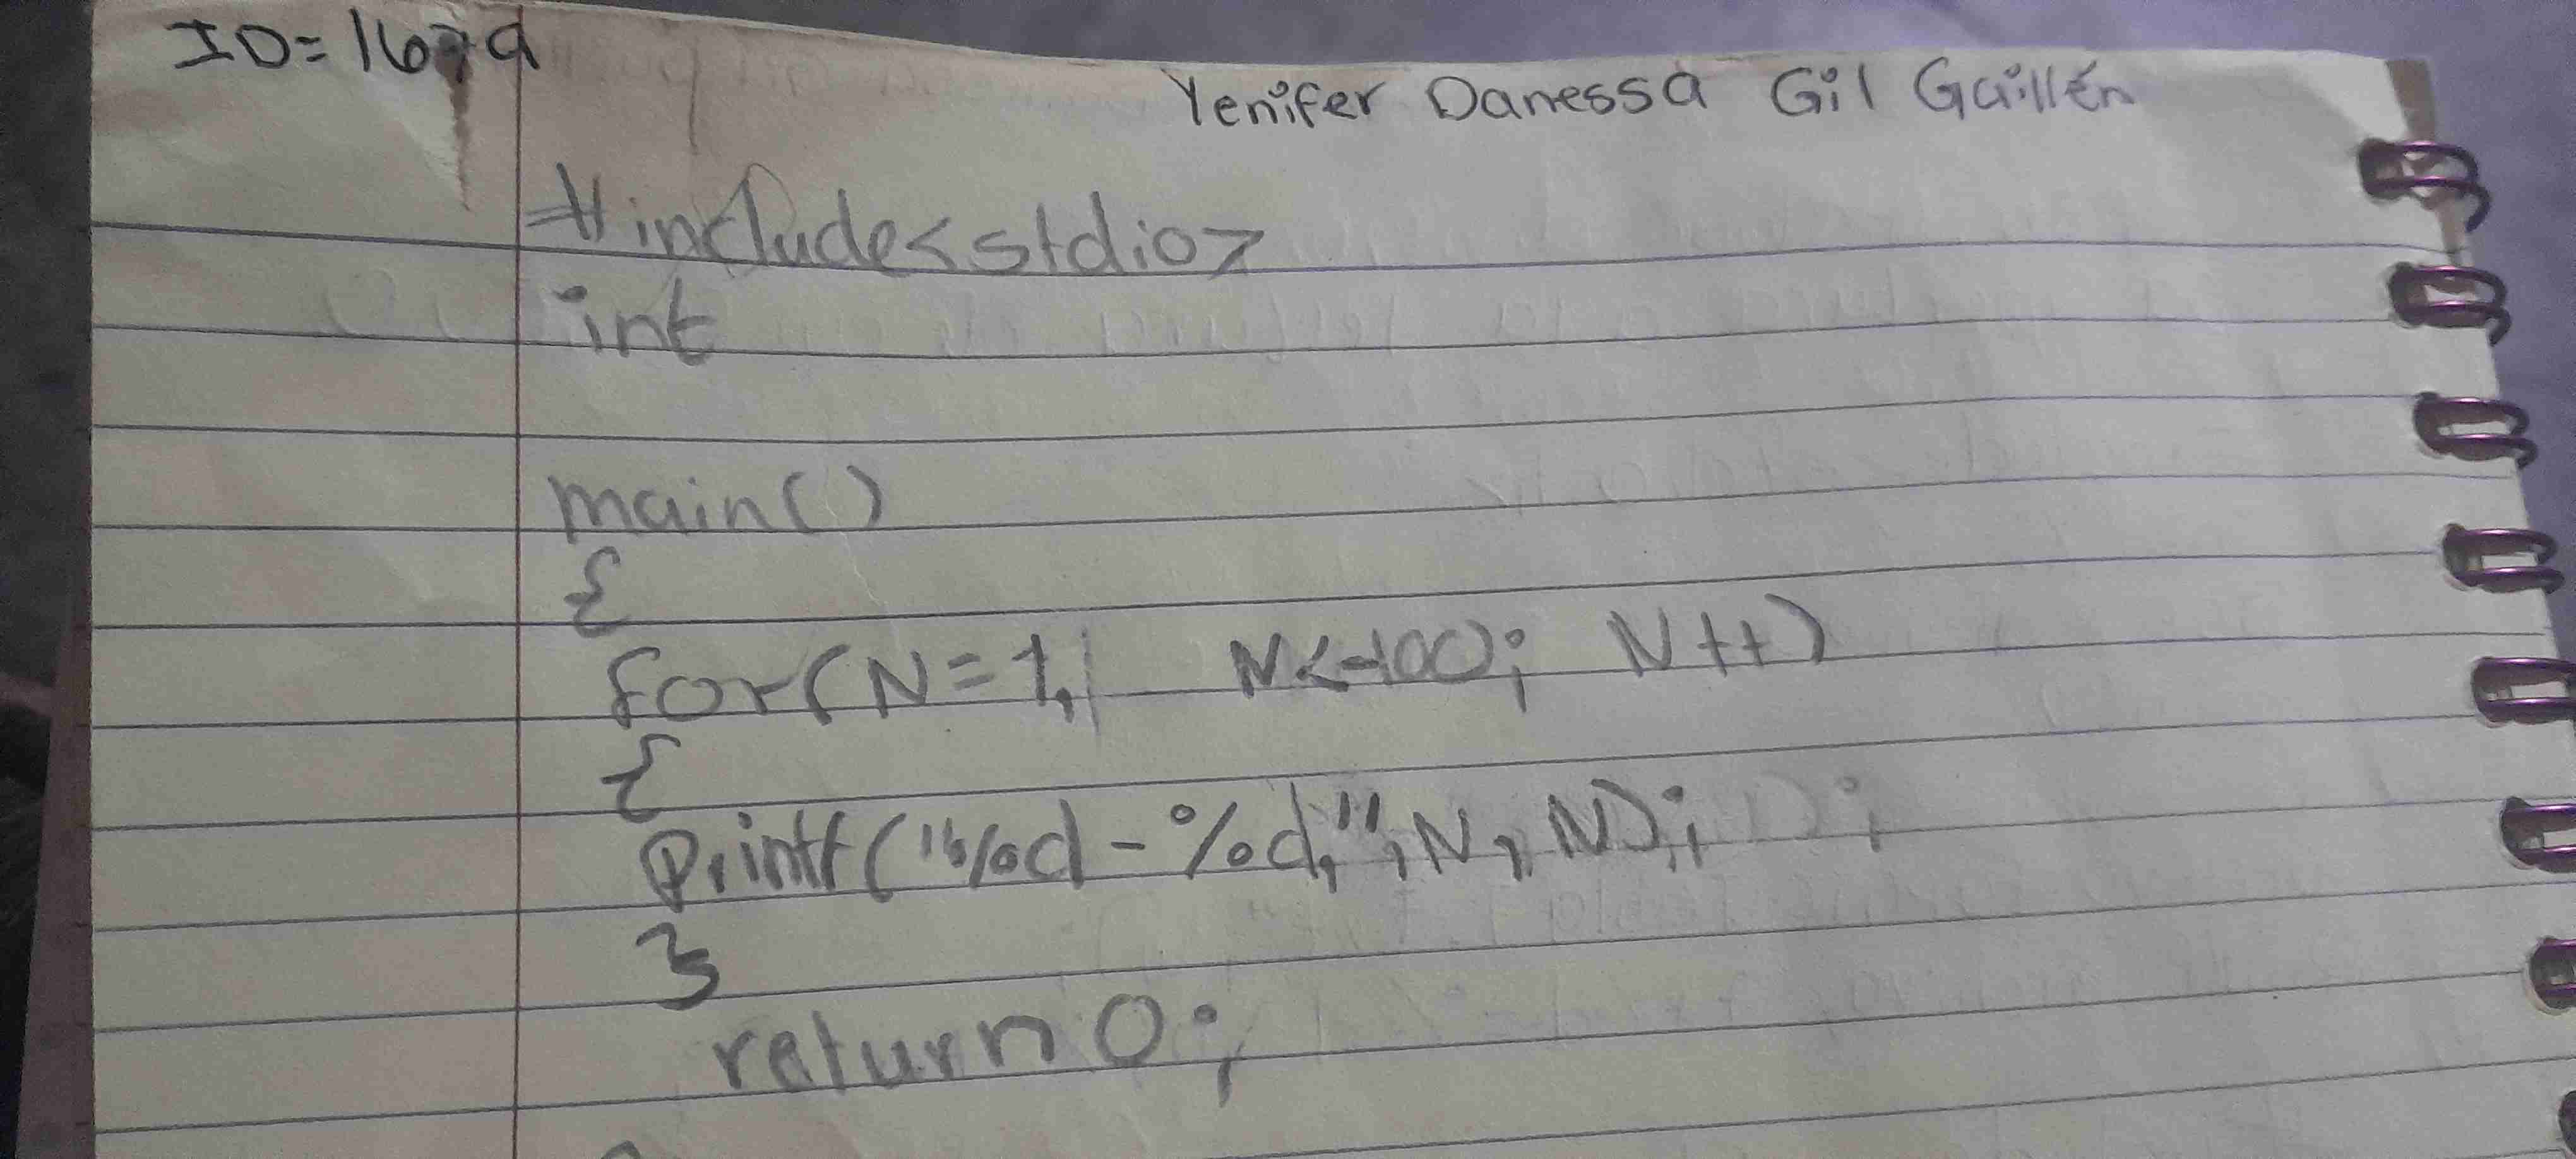 ID=1679
Yenifer Danessa Gil Guillén
#include<stdio>
int
main()
{
for(N=1, N<=100; N++)
{
Printf("%d-%d,",N,N);
}
return 0;